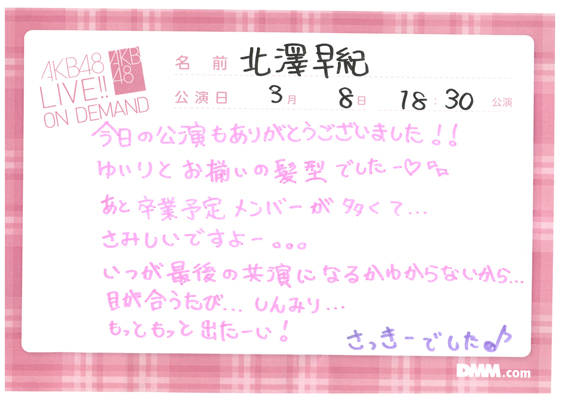 AKB48
LIVE!!
ON DEMAND
AKB
48
名前 北澤早紀
公演日 3月 8日 18:30 公演
今日の公演もありがとうございました!!
ゆいりとお揃いの髪型でしたー♡
あと卒業予定メンバーが多くて...
さみしいですよー。。。
いつが最後の共演になるかわからないから...
目が合うたび...しんみり...
もっともっと出たーい!
さっきーでした♪
DMM.com